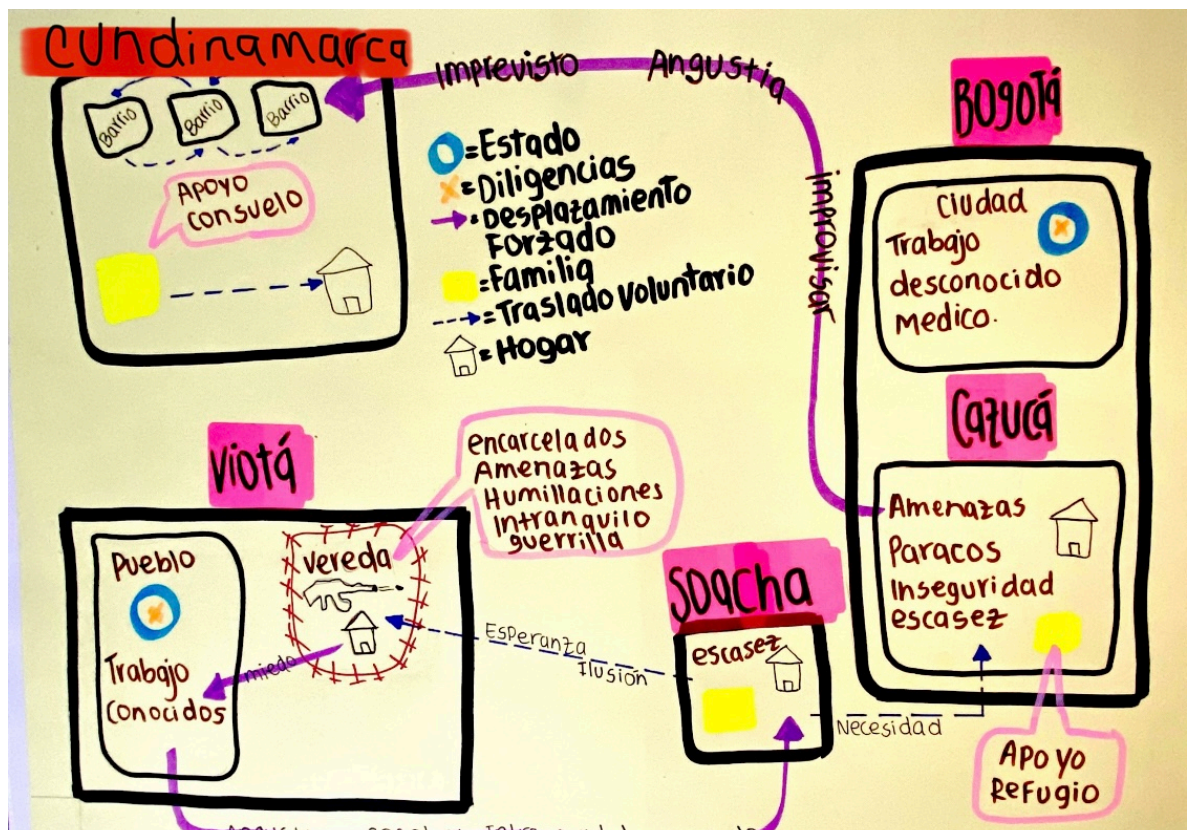 Cundinamarca
Barrio
Barrio
Barrio
Apoyo
consuelo
Imprevisto
Angustia
improvisar
=Estado
=Diligencias
=Desplazamiento
Forzado
=Familia
=Traslado Voluntario
=Hogar
Bogotá
Ciudad
Trabajo
desconocido
Medico.
Cazucá
Amenazas
Paracos
Inseguridad
escasez
Apoyo
Refugio
Viotá
Pueblo
Trabajo
Conocidos
Vereda
miedo
encarcelados
Amenazas
Humillaciones
Intranquilo
guerrilla
Esperanza
Ilusión
Soacha
escasez
Necesidad